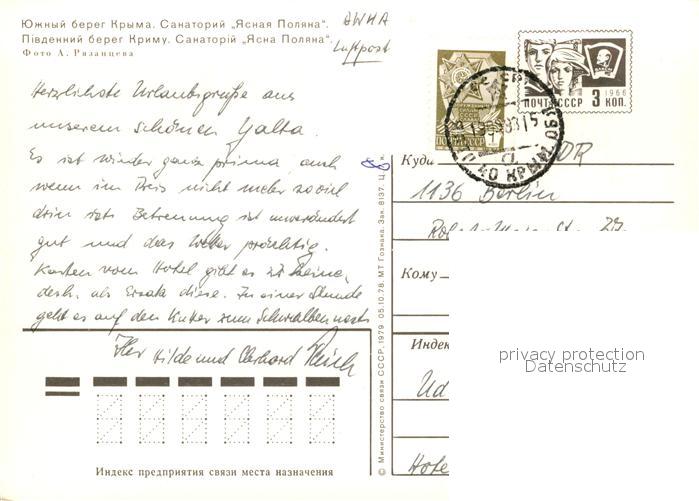 Южный берег Крыма. Санаторий „Ясная Поляна“.
Південний берег Криму. Санаторій „Ясна Поляна“.
Фото А. Рязанцева
АВИА
Luftpost
Herzlichste Urlaubsgrüße aus
unserem schönen Yalta.
Es ist wieder ganz prima, auch
wenn im Preis nicht mehr so viel
drin ist. Betreuung ist unverändert
gut und das Wetter prächtig.
Karten vom Hotel gibt es z.Z. keine,
desh. als Ersatz diese. In einer Stunde
geht es auf den Kutter zum Schwalbennest
Hilde und Eberhard
ПОЧТА СССР 3 КОП.
1966
Куда
DR
1136 Berlin
Кому
Индекс
privacy protection
Datenschutz
Hote
Индекс предприятия связи места назначения
© Министерство связи СССР, 1979 05.10.78. МТ Гознака. Зак. 8137.